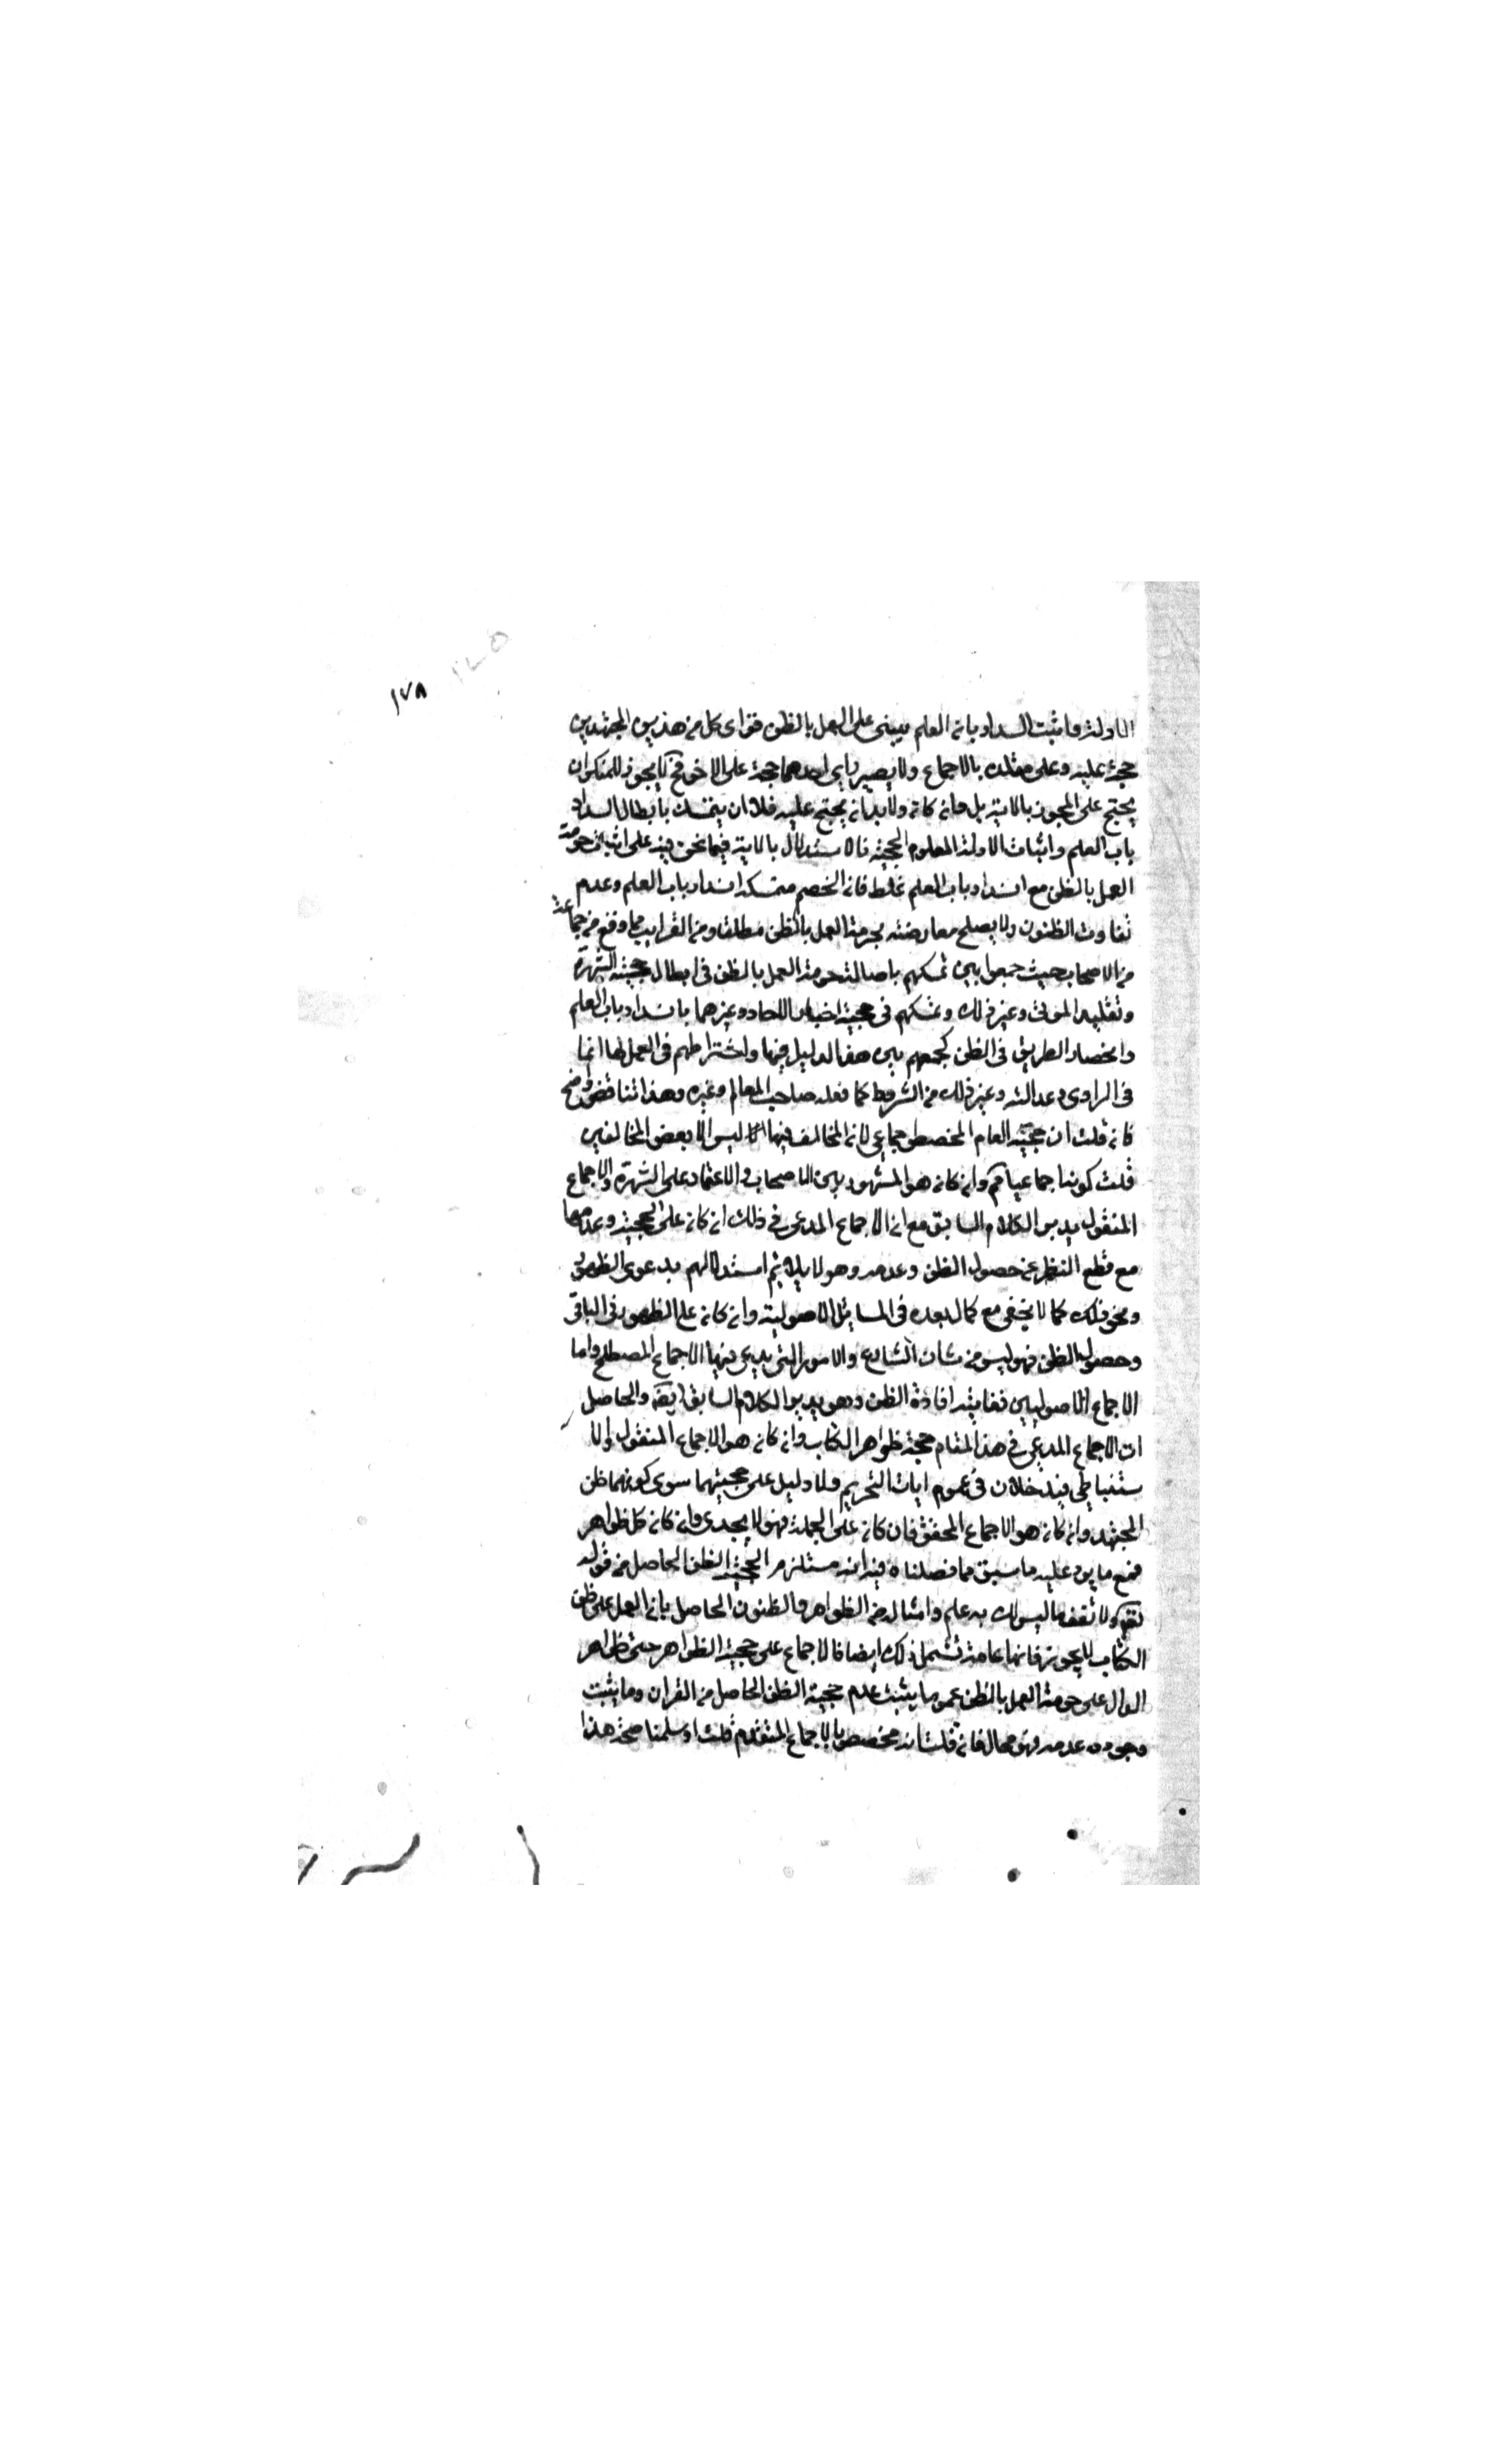 ١٧٨
الادلة وما ثبت انسداد باب العلم يبنى على العمل بالظن فتراى كل من هذين المجتهدين
حجة عليه وعلى مقلده بالاجماع ولا يصير راى احدهما حجة على الاخر فح لا يجوز للمنكر ان
يحتج على المجوز بالاية بل وان كان ولا بد ان يحتج عليه فلا ان يتمسك بابطال انسداد
باب العلم واثبات الادلة المعلوم الحجية فالاستدلال بالاية فيما نحن فيه على اثبات حرمة
العمل بالظن مع انسداد باب العلم غلط فان الخصم متمسك انسداد باب العلم وعدم
تفاوت الظنون ولا يصلح معارضته بحرمة العمل بالظن مطلقا ومن الغرايب ما وقع من جماعة
من الاصحاب حيث جمعوا بين تمسكهم باصالة حرمة العمل بالظن فى ابطال حجية الشهرة
وتقليد الموتى وغير ذلك وتمسكهم فى حجية اخبار الاحاد وغيرهما بانسداد باب العلم
وانحصار الطريق فى الظن كجمعهم بين هذا الدليل فيها واشتراطهم فى العمل بها
فى الراوى وعدالته وغير ذلك من الشروط كما فعله صاحب المعالم وغيره وهذا تناقض واضح
فان قلت ان حجية العام المخصص اجماعى لان المخالف فيها ليس الا بعض المخالفين
قلت كونها اجماعيا مم وان كان هو المشهور بين الاصحاب والاعتماد على الشهرة والاجماع
المنقول يدير الكلام السابق مع ان الاجماع المدعى فى ذلك ان كان على الحجية وعدمها
مع قطع النظر عن حصول الظن وعدمه وهو لا يلايم استدلالهم بدعوى الظهور
ونحو ذلك كما لا يخفى مع كمال بعده فى المسايل الاصولية وان كان على الظهور فى الباقى
وحصول الظن فهو ليس من شان الشارع والامور التى يدعى فيها الاجماع المصطلح واما
الاجماع الاصوليين فغايته افادة الظن وهو يدير الكلام السابق ايضا والحاصل
ان الاجماع المدعى فى هذا المقام حجة ظواهر الكتاب وان كان هو الاجماع المنقول والا
ستنباطى فيدخلان فى عموم ايات التحريم ولا دليل على حجيتهما سوى كونهما ظن
المجتهد وان كان هو الاجماع المحقق فان كان على الجملة فهو لا يجدى وان كان كل ظواهر
فمع ما يرد عليه ما سبق مما فصلناه فيه انه مستلزم الحجية الظن الحاصل من قوله
تعالى ولا تقف ما ليس لك به علم وامثاله من الظواهر والظنون الحاصل بان العمل على ظن
الكتاب لا يجوز فانها عامة تشمل ذلك ايضا فالاجماع على حجية الظواهر حتى ظواهر
الدال على حرمة العمل بالظن عموما يثبت عدم حجية الظن الحاصل من القران وما يثبت
وجوده عدمه فهو محال فان قلت انه مخصص بالاجماع المتقدم قلت او سلمنا صحة هذا